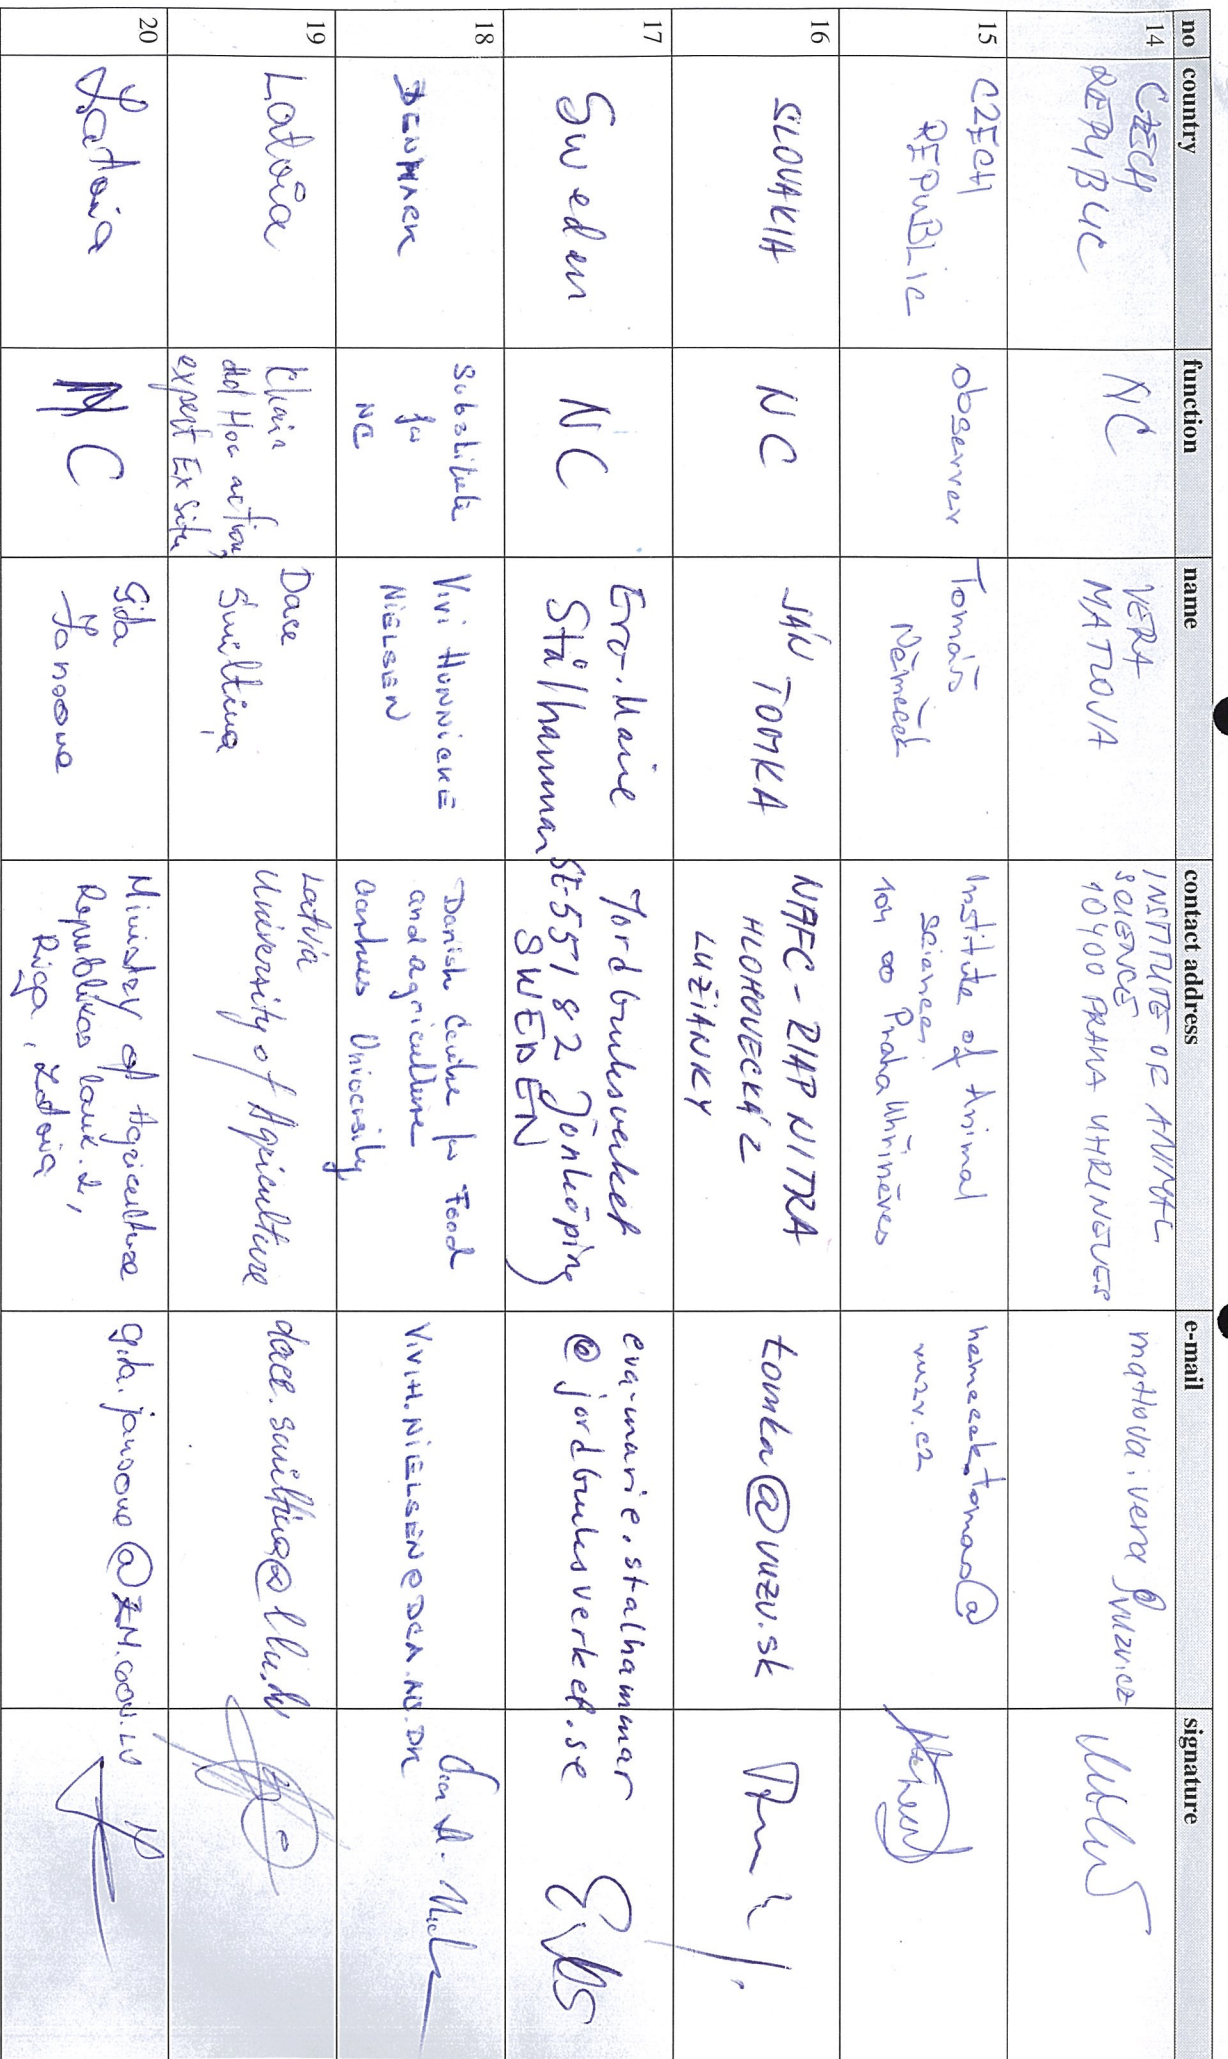 no country function name contact address e-mail signature
14
CZECH
REPUBLIC
NC
VERA
MATLOVA
INSTITUTE OF ANIMAL
SCIENCE
10400 PRAHA UHRINEVES
matlova.vera@vuzv.cz
15
CZECH
REPUBLIC
observer
Tomáš
Němeček
Institute of Animal
Science
104 00 Praha Uhříněves
nemecek.tomas@
vuzv.cz
16
SLOVAKIA
NC
JÁN TOMKA
NAFC - RIAP NITRA
HLOHOVECKÁ 2
LUŽIANKY
tomka@vuzv.sk
17
Sweden
NC
Eva-Marie
Stålhammar
Jordbruksverket
SE-55182 Jönköping
SWEDEN
eva-marie.stalhammar
@jordbruksverket.se
18
DENMARK
Substitute
for
NC
Vivi Hunnicke
Nielsen
Danish Centre for Food
and agriculture
Aarhus University
ViviH.Nielsen@DCA.AU.DK
19
Latvia
Chair
Ad Hoc action,
expert Ex Situ
Dace
Smiltiņa
Latvia
University of Agriculture
dace.smiltina@llu.lv
20
Latvia
NC
Gita
Jansone
Ministry of Agriculture
Republikas lauk. 2,
Riga, Latvia
gita.jansone@ZM.GOV.LV